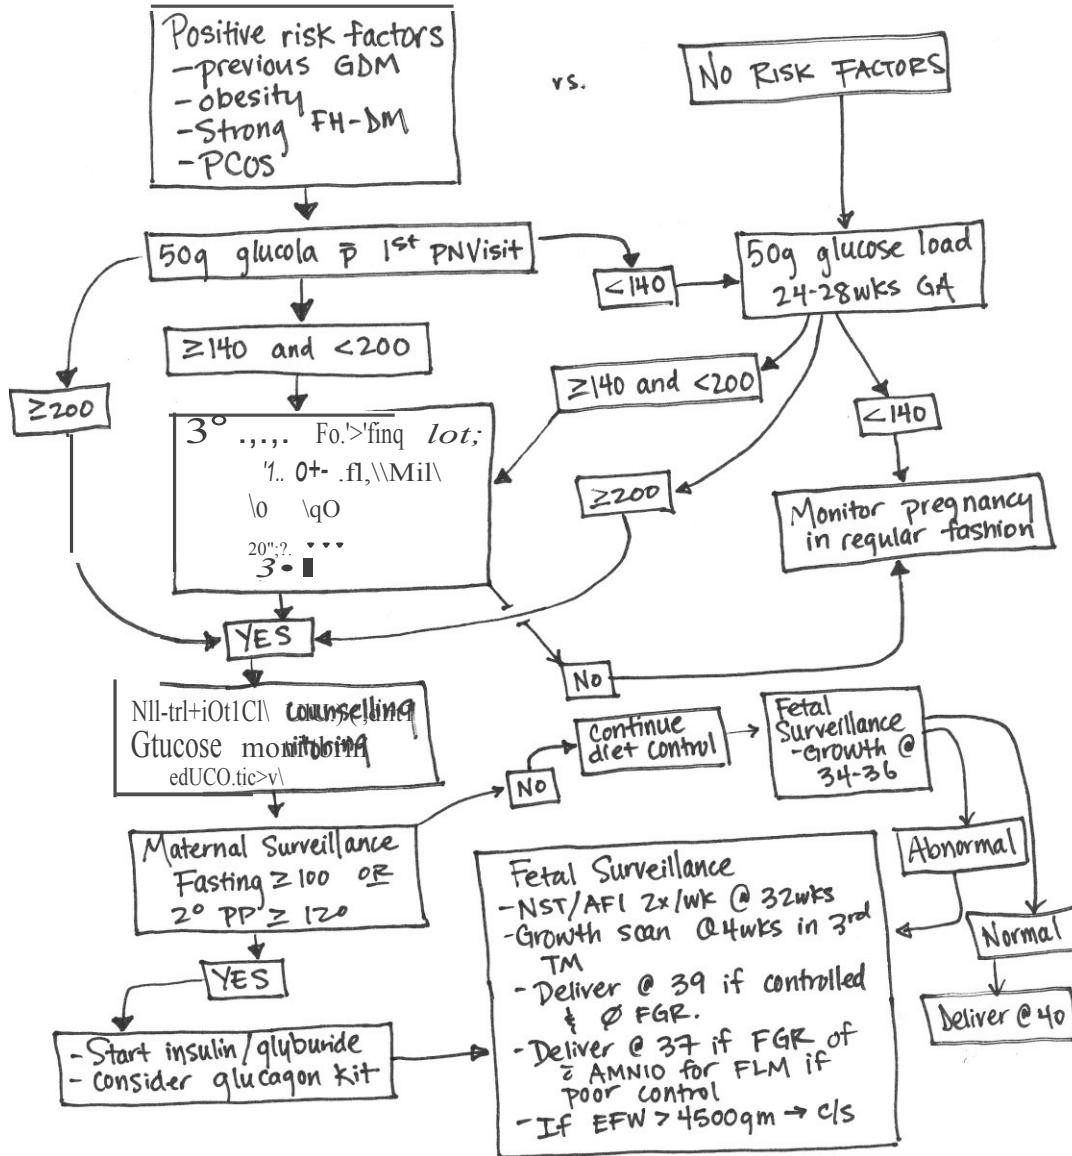 Positive risk factors
-previous GDM
-obesity
-Strong FH-DM
-PCOS
vs.
NO RISK FACTORS
50g glucola p̄ 1st PNVisit
<140
50g glucose load
24-28wks GA
≥140 and <200
≥200
≥140 and <200
<140
3°
≥200
Monitor pregnancy
in regular fashion
YES
NO
counselling
Glucose
Continue
diet control
Fetal
Surveillance
-Growth @
34-36
NO
Maternal Surveillance
Fasting ≥100 OR
2° PP ≥ 120
Abnormal
Normal
Deliver @ 40
YES
- Start insulin/glyburide
- Consider glucagon Kit
Fetal Surveillance
-NST/AFI 2x/wk @ 32wks
-Growth scan Q4wks in 3rd
TM
- Deliver @ 39 if controlled
& Ø FGR.
- Deliver @ 37 if FGR of
c̄ AMNIO for FLM if
poor control
- If EFW > 4500gm → c/s